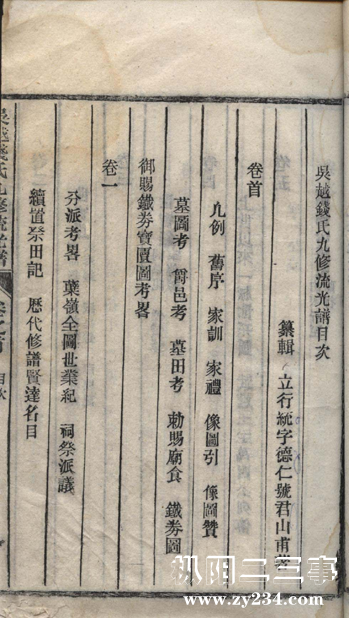 吳越錢氏九修流光譜目次
纂輯 立行統字德仁號君山甫
卷首
凡例 舊序 家訓 家禮 像圖引 像圖贊
墓圖考 爵邑考 墓田考 勅賜廟食 鐵券圖
御賜鐵券寶貢圖考畧
卷一
分派考畧 葉嶺全圖世業紀 祠祭派議
續置祭田記 歷代修譜賢達名目
吳越錢氏九修流光譜
目次
枞阳二三事
www.zy234.com